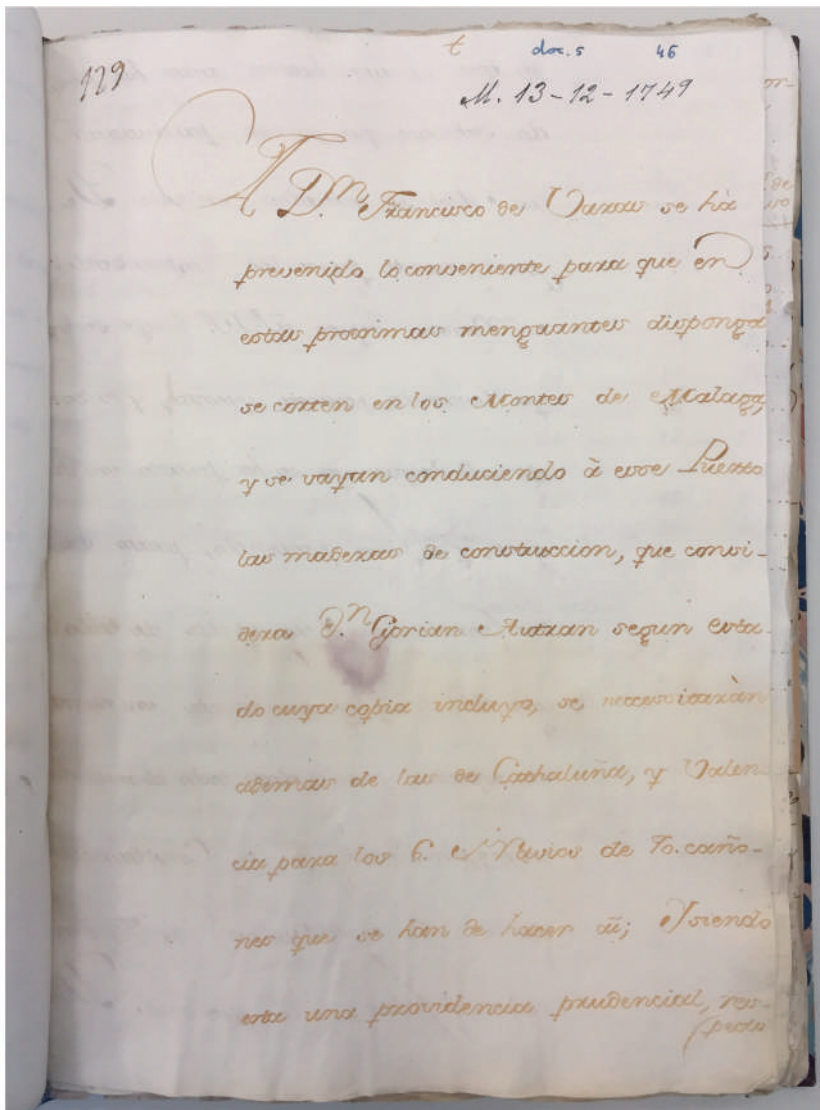 t doc. 5 46
129
M. 13-12-1749
A D.n Francisco de Varas se hà
prevenido lo conveniente para que en
estas proximas menguantes disponga
se corten en los Montes de Malaga,
y se vayan conduciendo à esse Puerto
las maderas de construccion, que consi-
dera D.n Ciprian Autran segun esta-
do cuya copia incluyo, se necessitaràn
ademas de las de Cathaluña, y Valen-
cia para los 6. Navios de 70. caño-
nes que se han de hacer ai; Y siendo
esta una providencia prudencial, res-
pecto